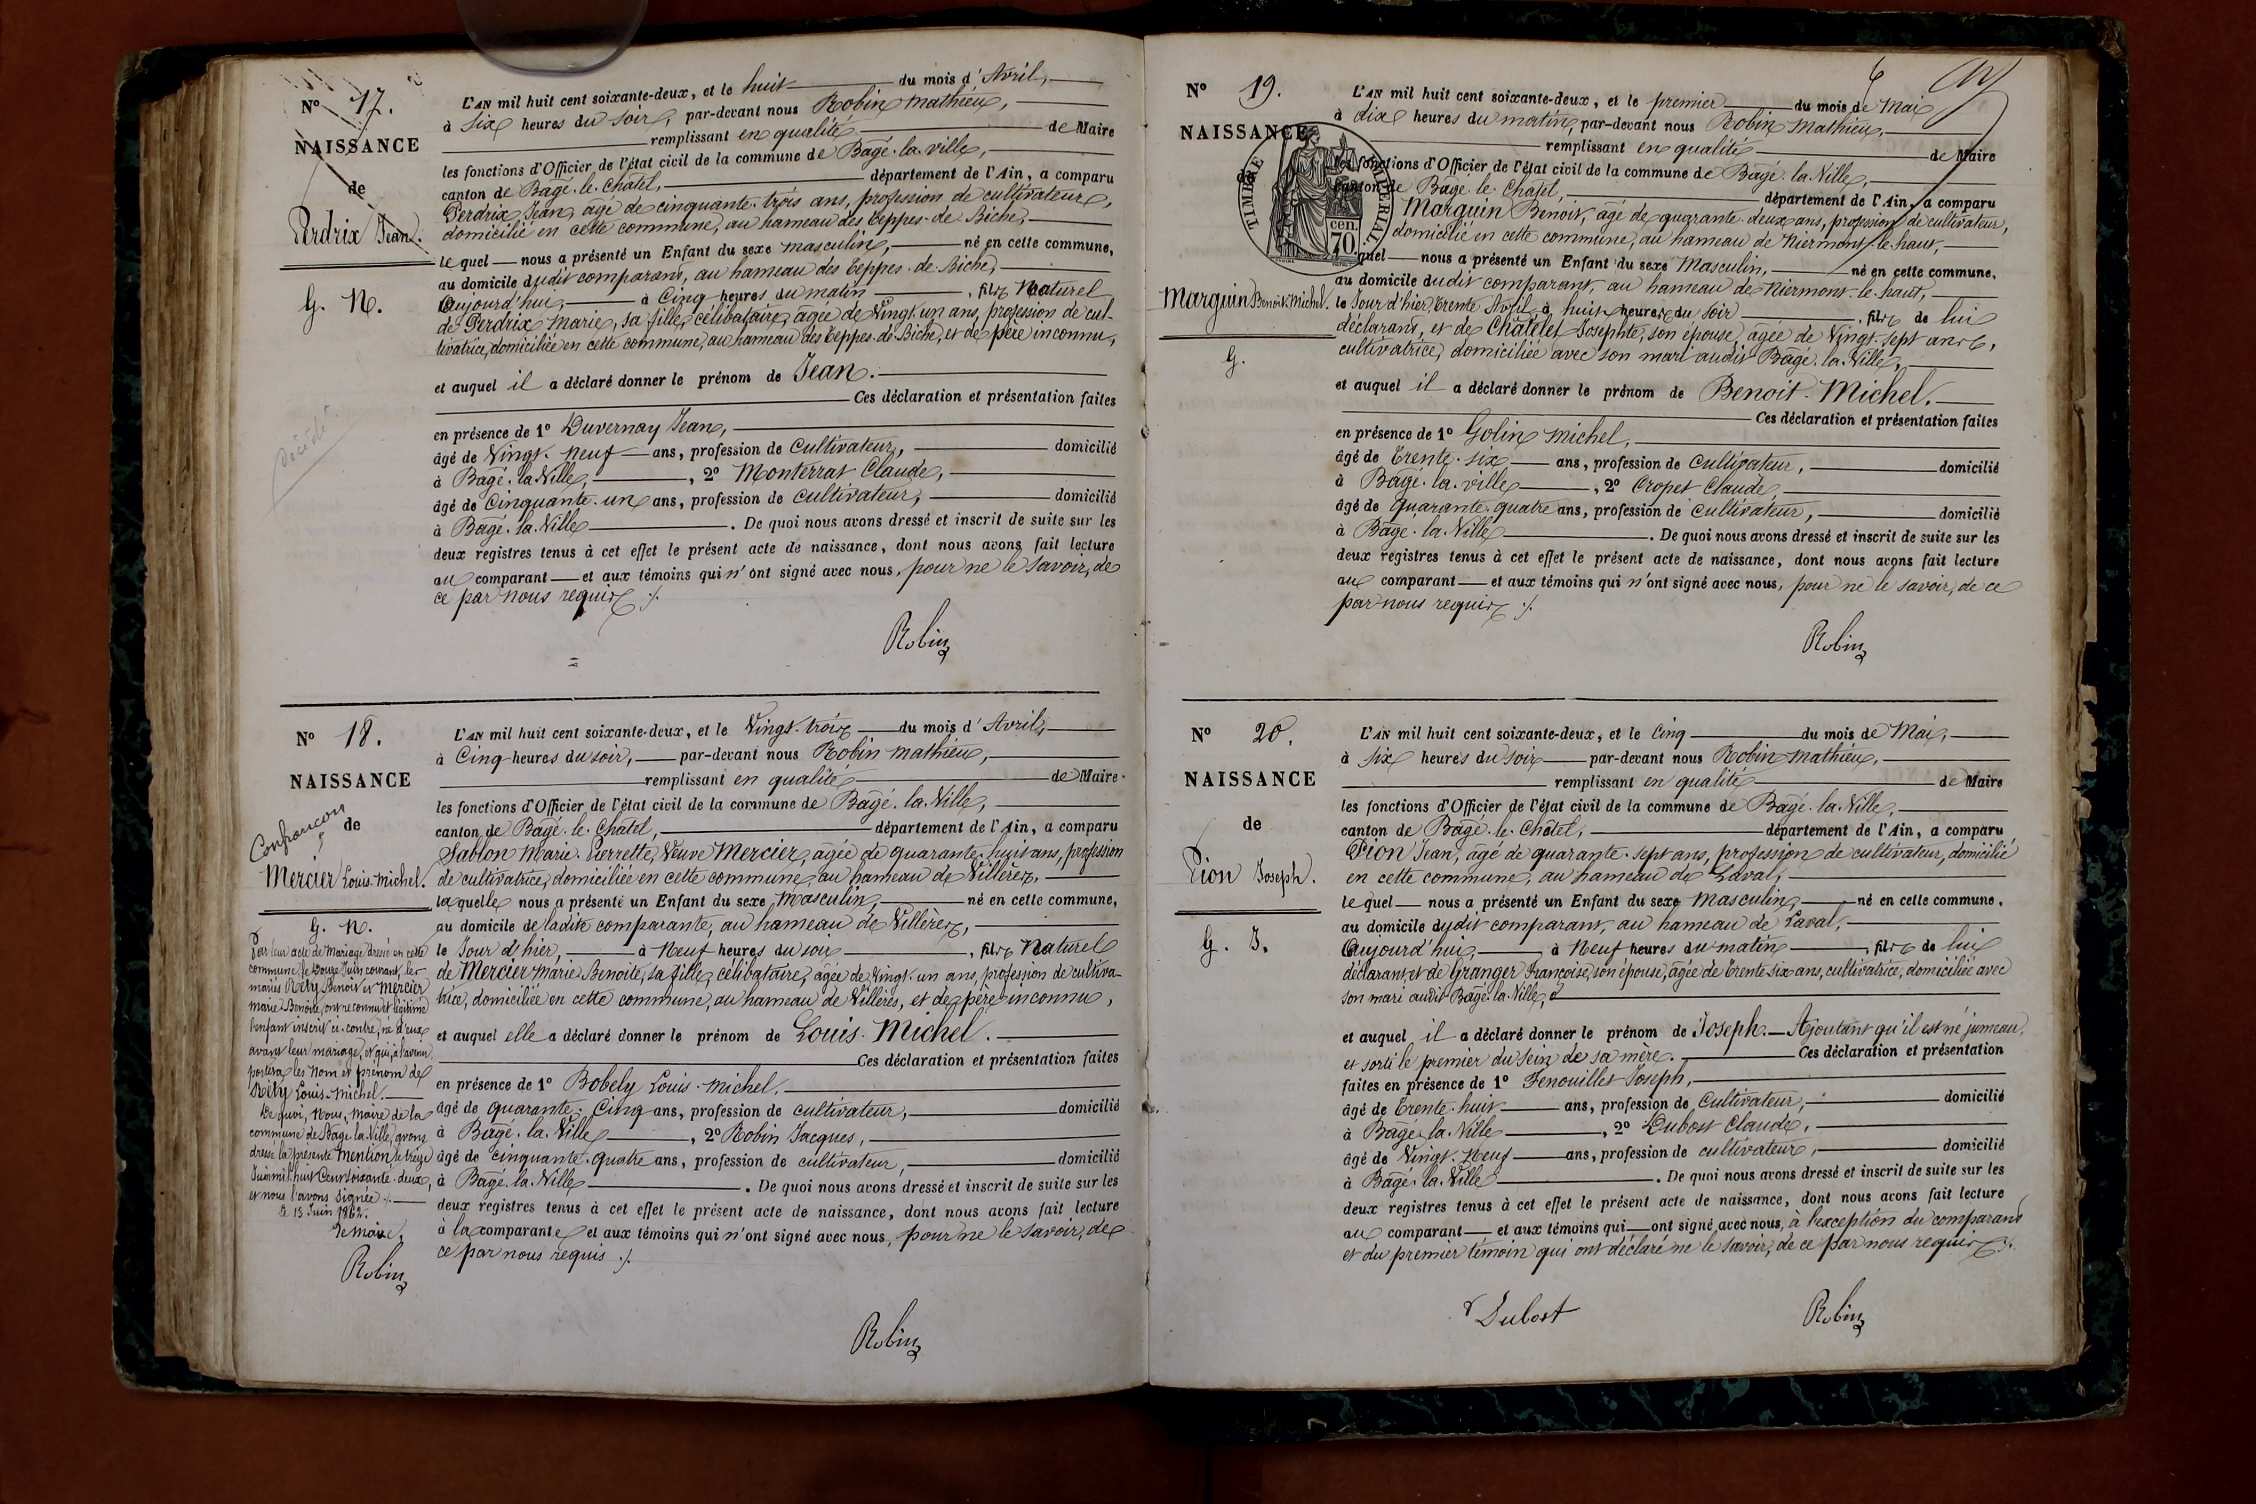 Nº 17.
NAISSANCE
de
Perdrix Jean.
G. N.
décédé
L'AN mil huit cent soixante-deux, et le huit du mois d'Avril,
à six heures du soir, par-devant nous Robin Mathieu,
remplissant en qualité de Maire
les fonctions d'Officier de l'état civil de la commune de Bagé-la-ville,
canton de Bagé-le-Châtel, département de l'Ain, a comparu
Perdrix Jean, âgé de cinquante-trois ans, profession de cultivateur,
domicilié en cette commune, au hameau des Teppes-de-Biche,
le quel nous a présenté un Enfant du sexe masculin, né en cette commune,
au domicile dudit comparant, au hameau des Teppes-de-Biche,
Aujourd'hui, à Cinq heures du matin, fils Naturel
de Perdrix Marie, sa fille, célibataire, âgée de Vingt-un ans, profession de cul-
tivatrice, domiciliée en cette commune, au hameau des Teppes-de-Biche, et de père inconnu,
et auquel il a déclaré donner le prénom de Jean.
Ces déclaration et présentation faites
en présence de 1º Duvernay Jean,
âgé de Vingt-neuf ans, profession de Cultivateur, domicilié
à Bagé-la-Ville, 2º Monterrat Claude,
âgé de Cinquante-un ans, profession de Cultivateur, domicilié
à Bagé-la-Ville. De quoi nous avons dressé et inscrit de suite sur les
deux registres tenus à cet effet le présent acte de naissance, dont nous avons fait lecture
au comparant et aux témoins qui n'ont signé avec nous, pour ne le savoir, de
ce par nous requis ./.
Robin
Nº 18.
NAISSANCE
de
Confrançon
Mercier Louis-Michel.
G. N.
Par leur acte de Mariage dressé en cette
commune, le Douze Juin courant, les
mariés Réty Benoit et Mercier
Marie-Benoite, ont reconnu et légitimé
l'enfant inscrit ci-contre, né d'eux
avant leur mariage, et qui, à l'avenir
portera les Nom et prénom de
Réty Louis-Michel.
De quoi, Nous, Maire de la
commune de Bagé-la-Ville, avons
dressé la présente Mention, le treize
Juin mil huit Cent soixante-deux,
et nous l'avons signée ./.
Le 13 Juin 1862.
Le Maire,
Robin
L'AN mil huit cent soixante-deux, et le Vingt-trois du mois d'Avril,
à Cinq heures du soir, par-devant nous Robin Mathieu,
remplissant en qualité de Maire
les fonctions d'Officier de l'état civil de la commune de Bagé-la-Ville,
canton de Bagé-le-Châtel, département de l'Ain, a comparu
Sablon Marie-Pierrette, Veuve Mercier, âgée de quarante-huit ans, profession
de cultivatrice, domiciliée en cette commune, au hameau de Villères,
la quelle nous a présenté un Enfant du sexe Masculin, né en cette commune,
au domicile de ladite comparante, au hameau de Villères,
le Jour d'hier, à Neuf heures du soir, fils Naturel
de Mercier Marie Benoite, sa fille, célibataire, âgée de Vingt-un ans, profession de cultiva-
trice, domiciliée en cette commune, au hameau de Villères, et de père inconnu,
et auquel elle a déclaré donner le prénom de Louis-Michel.
Ces déclaration et présentation faites
en présence de 1º Bobely Louis-Michel.
âgé de quarante-Cinq ans, profession de cultivateur, domicilié
à Bagé-la-Ville, 2º Robin Jacques,
âgé de cinquante-quatre ans, profession de cultivateur, domicilié
à Bagé-la-Ville. De quoi nous avons dressé et inscrit de suite sur les
deux registres tenus à cet effet le présent acte de naissance, dont nous avons fait lecture
à la comparante et aux témoins qui n'ont signé avec nous, pour ne le savoir, de
ce par nous requis ./.
Robin
6
Nº 19.
NAISSANCE
de
TIMBRE IMPERIAL
70 cen.
Marguin Benoit Michel.
G.
L'AN mil huit cent soixante-deux, et le premier du mois de Mai
à dix heures du matin, par-devant nous Robin Mathieu,
remplissant en qualité de Maire
les fonctions d'Officier de l'état civil de la commune de Bagé-la-Ville,
canton de Bagé-le-Châtel, département de l'Ain, a comparu
Marguin Benoit, âgé de quarante-deux ans, profession de cultivateur,
domicilié en cette commune, au hameau de Niermont-le-haut,
quel nous a présenté un Enfant du sexe Masculin, né en cette commune,
au domicile dudit comparant, au hameau de Niermont-le-haut,
le Jour d'hier, Trente Avril, à huit heures du soir, fils de lui
déclarant, et de Châtelet Josephte, son épouse, âgée de Vingt-sept ans,
cultivatrice, domiciliée avec son mari audit Bagé-la-Ville,
et auquel il a déclaré donner le prénom de Benoit-Michel.
Ces déclaration et présentation faites
en présence de 1º Golin Michel,
âgé de Trente-six ans, profession de Cultivateur, domicilié
à Bagé-la-ville, 2º Cropet Claude,
âgé de Quarante-quatre ans, profession de Cultivateur, domicilié
à Bagé-la-Ville. De quoi nous avons dressé et inscrit de suite sur les
deux registres tenus à cet effet le présent acte de naissance, dont nous avons fait lecture
au comparant et aux témoins qui n'ont signé avec nous, pour ne le savoir, de ce
par nous requis ./.
Robin
Nº 20.
NAISSANCE
de
Pion Joseph.
G. J.
L'AN mil huit cent soixante-deux, et le Cinq du mois de Mai,
à six heures du soir par-devant nous Robin Mathieu,
remplissant en qualité de Maire
les fonctions d'Officier de l'état civil de la commune de Bagé-la-Ville,
canton de Bagé-le-Châtel, département de l'Ain, a comparu
Pion Jean, âgé de quarante-sept ans, profession de cultivateur, domicilié
en cette commune, au hameau de Laval,
le quel nous a présenté un Enfant du sexe Masculin, né en cette commune,
au domicile dudit comparant, au hameau de Laval,
Aujourd'hui, à Neuf heures du matin, fils de lui
déclarant et de Granger Françoise, son épouse, âgée de Trente-six ans, cultivatrice, domiciliée avec
son mari audit Bagé-la-Ville,
et auquel il a déclaré donner le prénom de Joseph. Ajoutant qu'il est né jumeau,
et sorti le premier du sein de sa mère. Ces déclaration et présentation
faites en présence de 1º Fenouillet Joseph,
âgé de Trente-huit ans, profession de Cultivateur, domicilié
à Bagé-la-Ville, 2º Dubost Claude,
âgé de Vingt-Neuf ans, profession de cultivateur, domicilié
à Bagé-la-Ville. De quoi nous avons dressé et inscrit de suite sur les
deux registres tenus à cet effet le présent acte de naissance, dont nous avons fait lecture
au comparant et aux témoins qui ont signé avec nous, à l'exception du comparant
et du premier témoin qui ont déclaré ne le savoir, de ce par nous requis ./.
Dubost
Robin